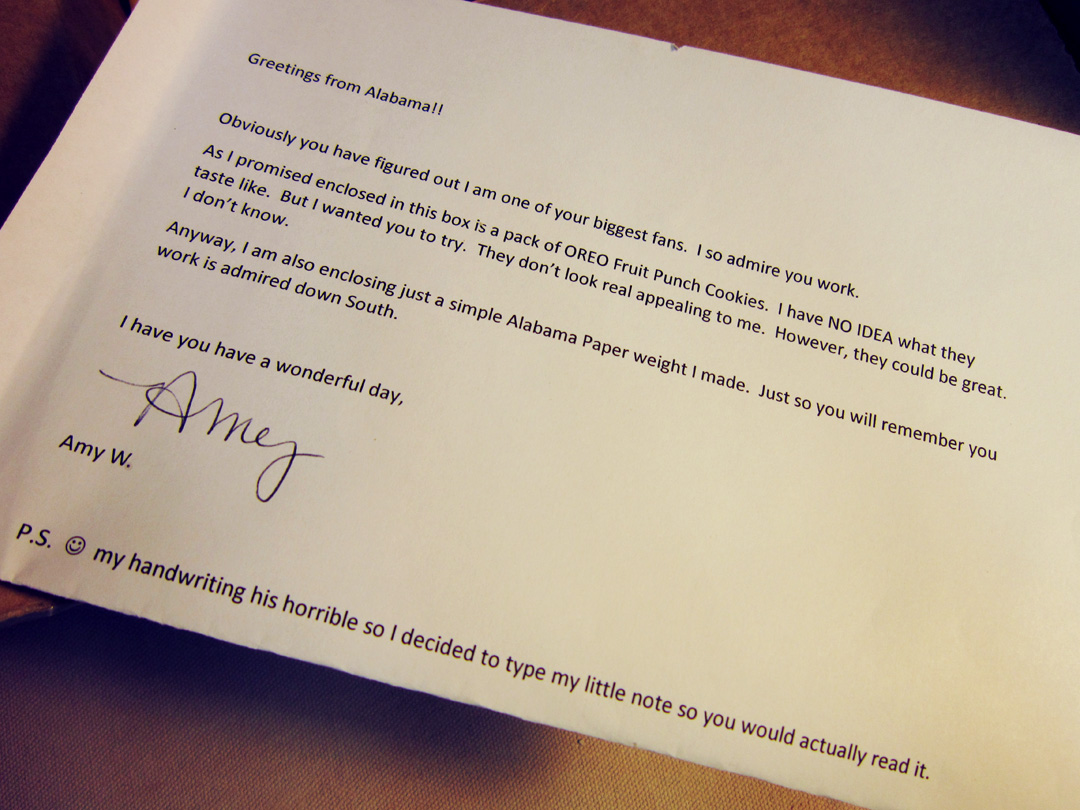 Greetings from Alabama!!
Obviously you have figured out I am one of your biggest fans.  I so admire you work.
As I promised enclosed in this box is a pack of OREO Fruit Punch Cookies.  I have NO IDEA what they
taste like.  But I wanted you to try.  They don't look real appealing to me.  However, they could be great.
I don't know.
Anyway, I am also enclosing just a simple Alabama Paper weight I made.  Just so you will remember you
work is admired down South.
I have you have a wonderful day,
Amy
Amy W.
P.S. ☺ my handwriting his horrible so I decided to type my little note so you would actually read it.